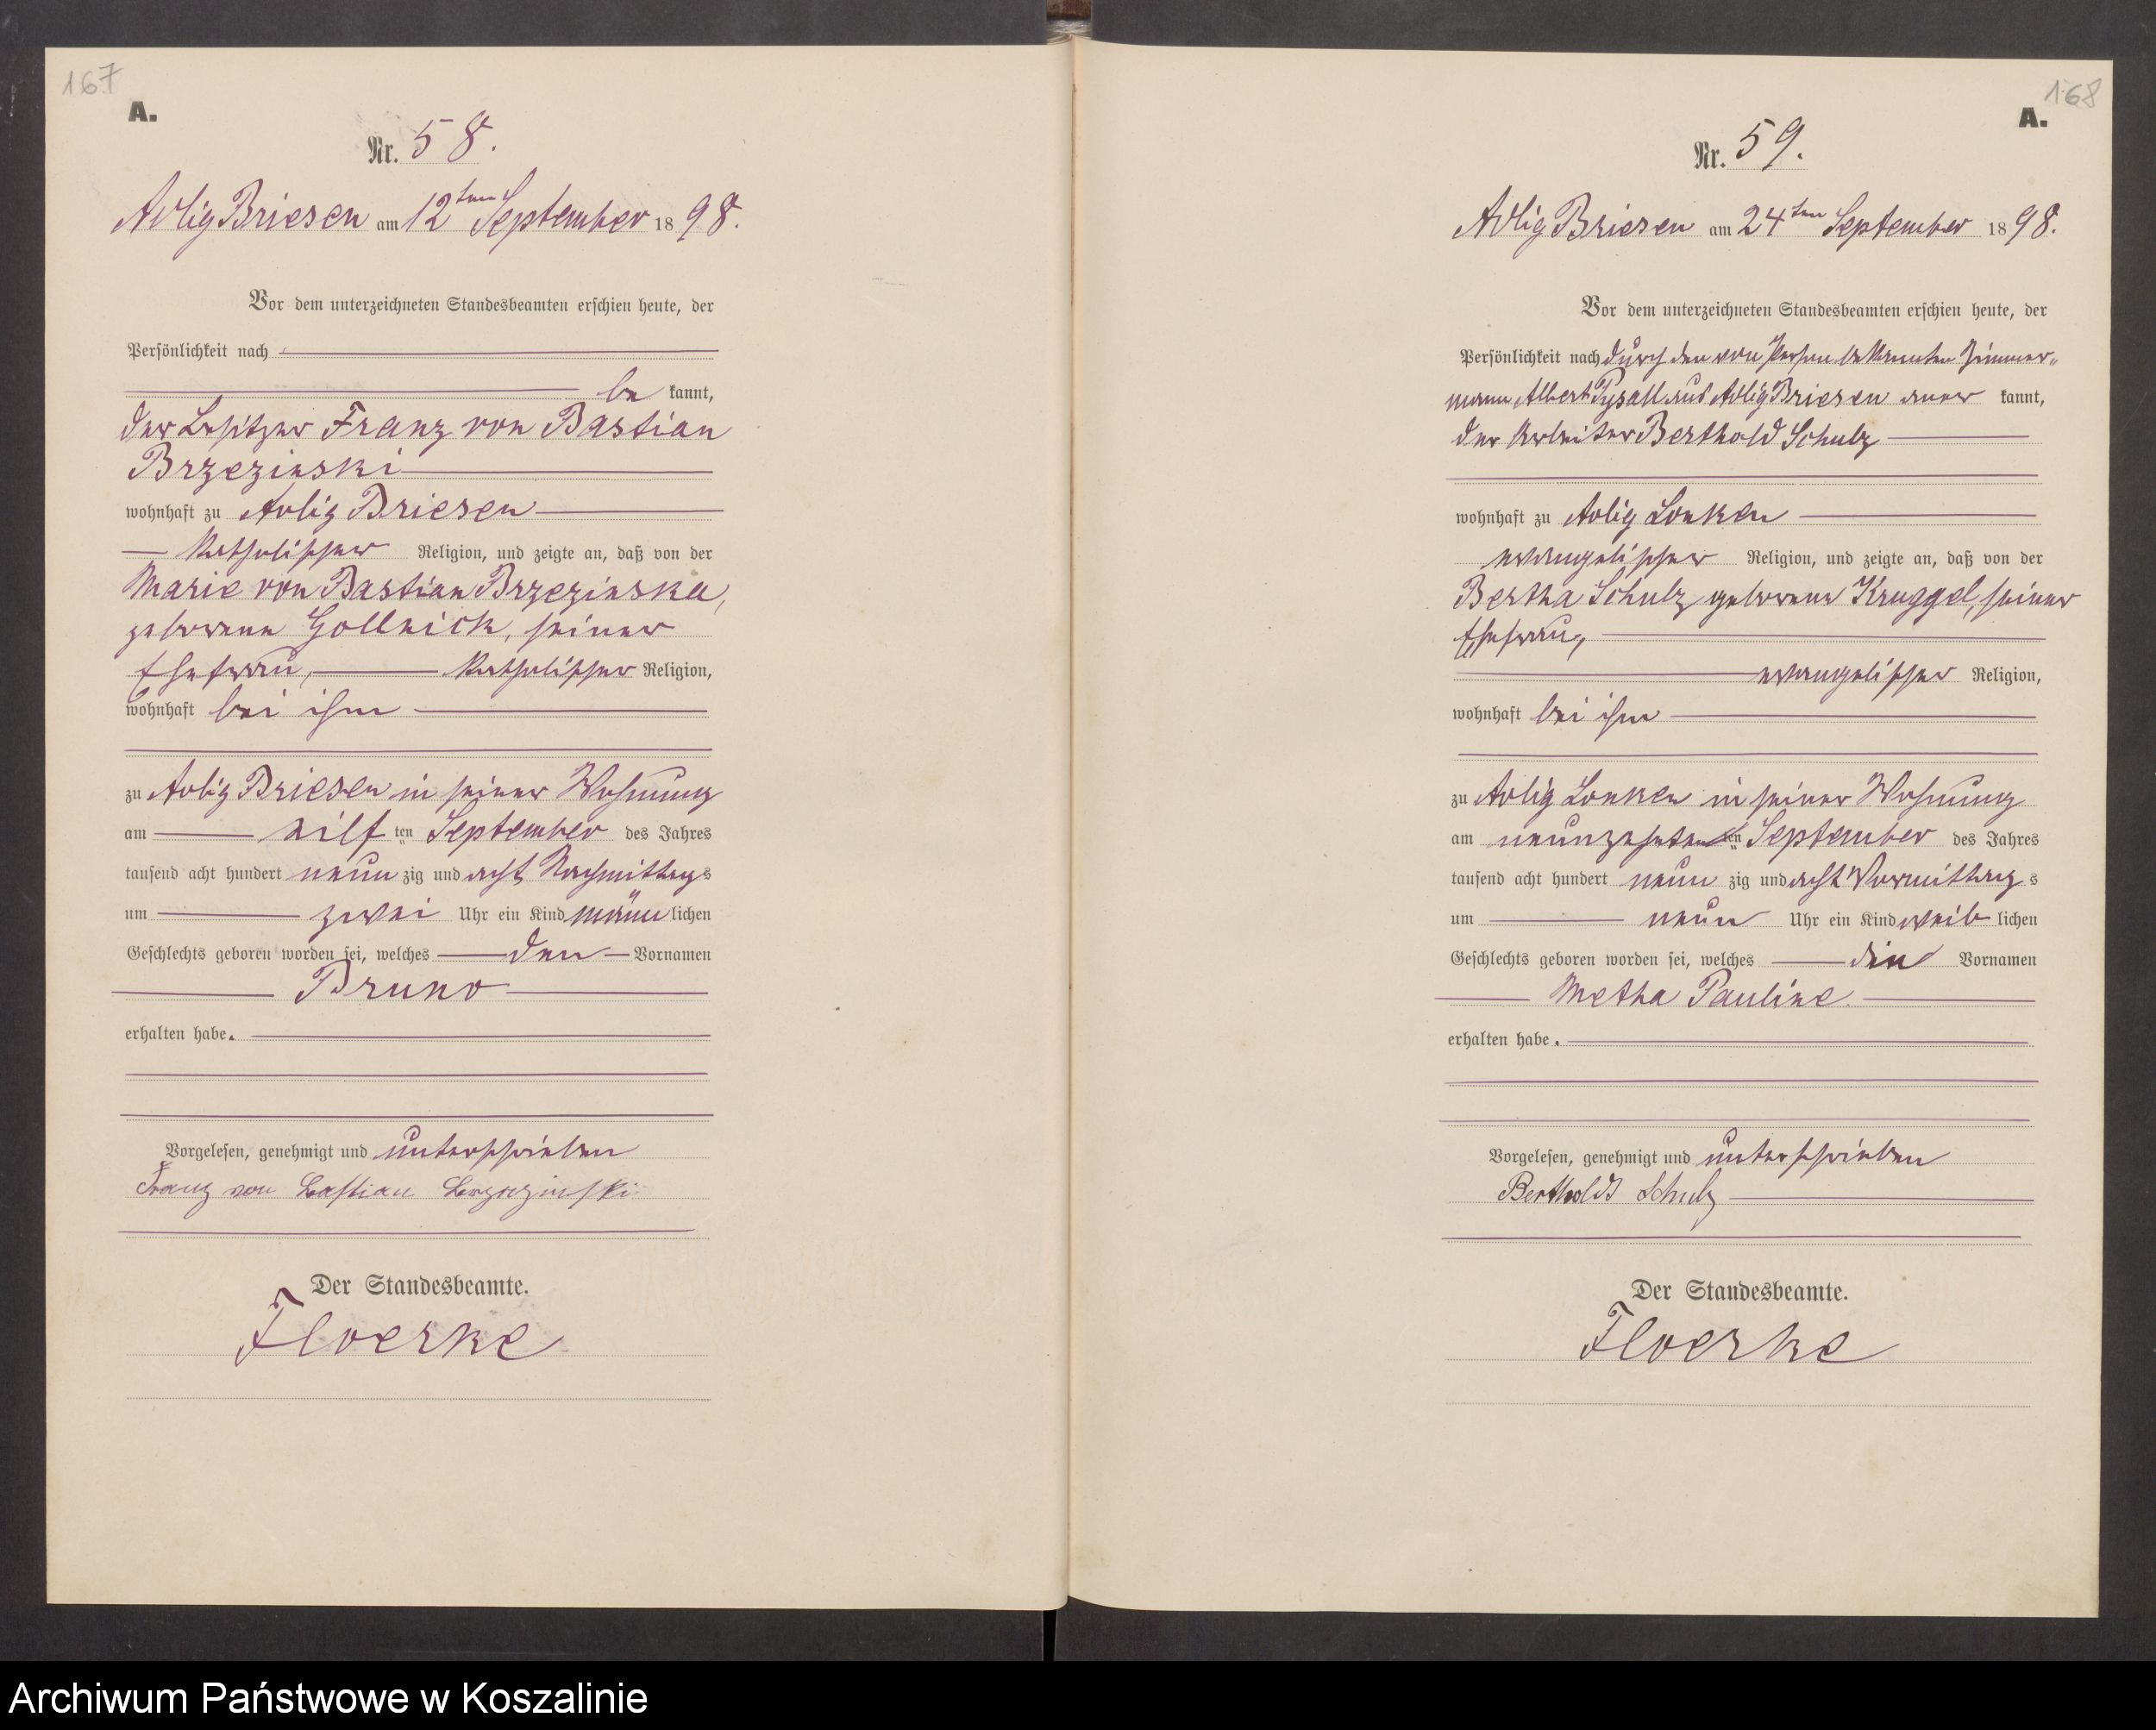 167
A.
Nr. 58.
Adlig Briesen am 12ten September 1898.
Vor dem unterzeichneten Standesbeamten erschien heute, der
Persönlichkeit nach
be kannt,
der Besitzer Franz von Bastian
Brzezinski
wohnhaft zu Adlig Briesen
katholischer Religion, und zeigte an, daß von der
Marie von Bastian Brzezinska,
geborene Gollnick, seiner
Ehefrau, katholischer Religion,
wohnhaft bei ihm
zu Adlig Briesen in seiner Wohnung
am eilf ten September des Jahres
tausend acht hundert neun zig und acht Nachmittags
um zwei Uhr ein Kind männlichen
Geschlechts geboren worden sei, welches den Vornamen
Bruno
erhalten habe.
Vorgelesen, genehmigt und unterschrieben
Franz von Bastian Brzezinski
Der Standesbeamte.
Floerke
168
A.
Nr. 59.
Adlig Briesen am 24ten September 1898.
Vor dem unterzeichneten Standesbeamten erschien heute, der
Persönlichkeit nach durch den von Person bekannten Zimmer-
mann Albert Pysall aus Adlig Briesen aner kannt,
der Arbeiter Berthold Schulz
wohnhaft zu Adlig Lonken
evangelischer Religion, und zeigte an, daß von der
Bertha Schulz geborene Kruggel, seiner
Ehefrau,
evangelischer Religion,
wohnhaft bei ihm
zu Adlig Lonken in seiner Wohnung
am neunzehnten ten September des Jahres
tausend acht hundert neun zig und acht Vormittags
um neun Uhr ein Kind weiblichen
Geschlechts geboren worden sei, welches die Vornamen
Metha Pauline
erhalten habe.
Vorgelesen, genehmigt und unterschrieben
Berthold Schulz
Der Standesbeamte.
Floerke
Archiwum Państwowe w Koszalinie